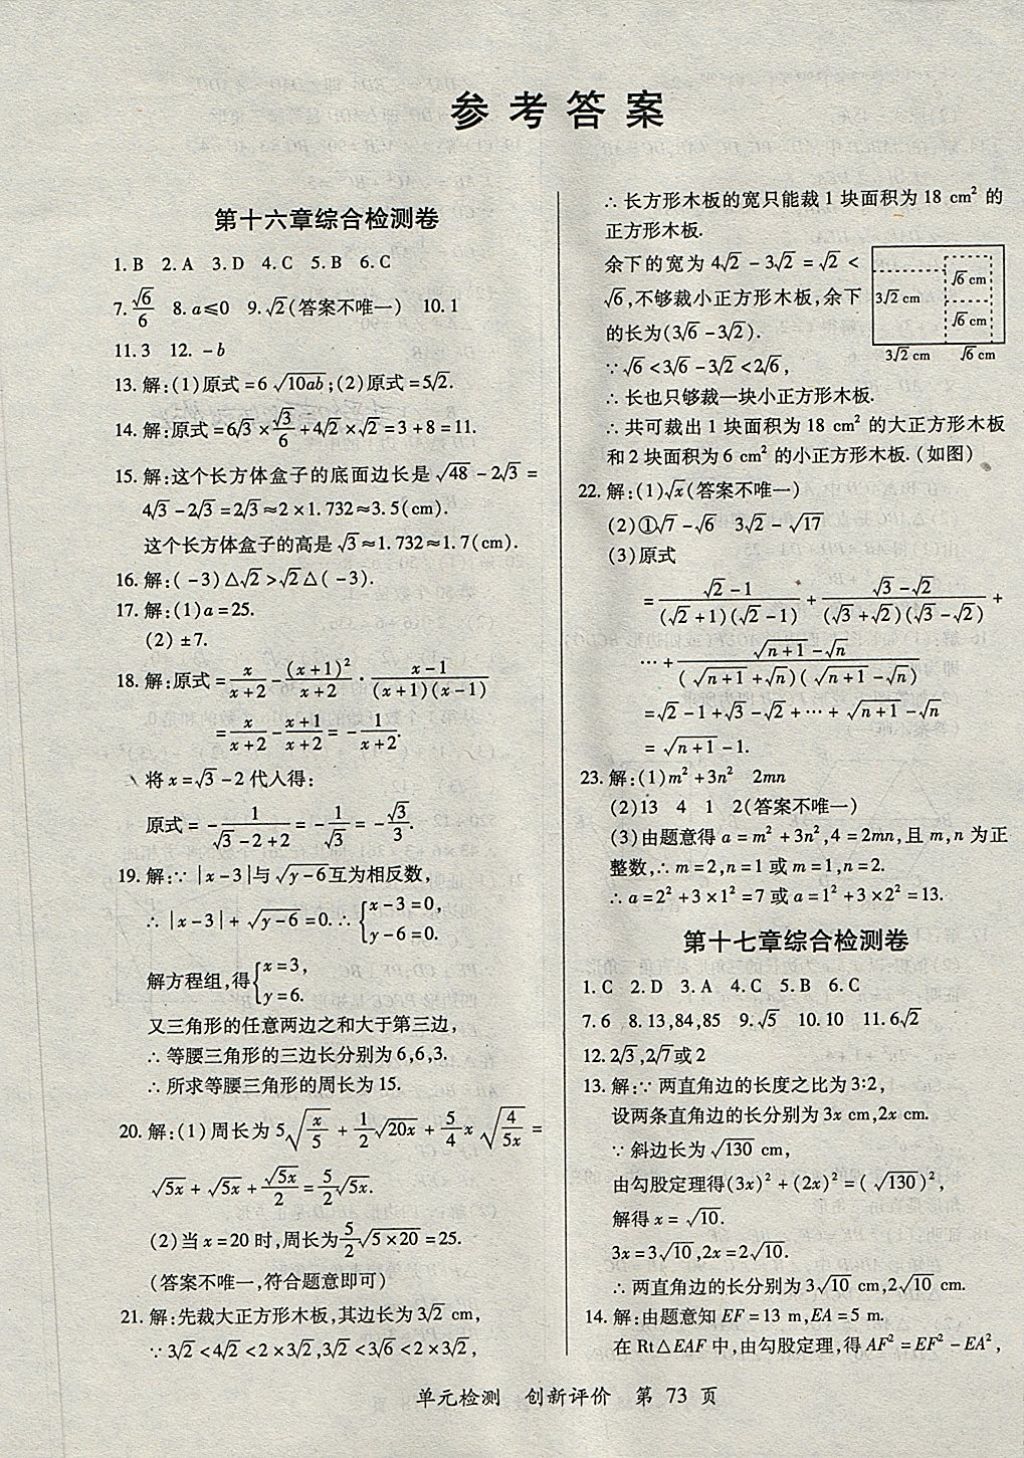 参考答案
第十六章综合检测卷
1.B 2.A 3.D 4.C 5.B 6.C
7.√6/6 8.a≤0 9.√2(答案不唯一) 10.1
11.3 12.-b
13.解:(1)原式=6√10ab;(2)原式=5√2.
14.解:原式=6√3×√3/6+4√2×√2=3+8=11.
15.解:这个长方体盒子的底面边长是√48-2√3=
4√3-2√3=2√3≈2×1.732≈3.5(cm).
这个长方体盒子的高是√3≈1.732≈1.7(cm).
16.解:(-3)△√2>√2△(-3).
17.解:(1)a=25.
(2)±7.
18.解:原式=x/(x+2)-(x+1)²/(x+2)·(x-1)/((x+1)(x-1))
=x/(x+2)-(x+1)/(x+2)=-1/(x+2).
将x=√3-2代人得:
原式=-1/(√3-2+2)=-1/√3=-√3/3.
19.解:∵|x-3|与√(y-6)互为相反数,
∴|x-3|+√(y-6)=0.∴{x-3=0, y-6=0.
解方程组,得{x=3, y=6.
又三角形的任意两边之和大于第三边,
∴等腰三角形的三边长分别为6,6,3.
∴所求等腰三角形的周长为15.
20.解:(1)周长为5√(x/5)+1/2√(20x)+5/4 x√(4/(5x))=
√(5x)+√(5x)+√(5x)/2=5/2√(5x).
(2)当x=20时,周长为5/2√(5×20)=25.
(答案不唯一,符合题意即可)
21.解:先裁大正方形木板,其边长为3√2 cm,
∵3√2<4√2<2×3√2,3√2<3√6<2×3√2,
∴长方形木板的宽只能裁1块面积为18 cm²的
正方形木板.
余下的宽为4√2-3√2=√2<
√6,不够裁小正方形木板,余下
的长为(3√6-3√2).
∵√6<3√6-3√2<2√6,
3√2 cm
√6 cm
√6 cm
3√2 cm √6 cm
∴长也只够裁一块小正方形木板.
∴共可裁出1块面积为18 cm²的大正方形木板
和2块面积为6 cm²的小正方形木板.(如图)
22.解:(1)√x(答案不唯一)
(2)①√7-√6 3√2-√17
(3)原式
=(√2-1)/((√2+1)(√2-1))+(√3-√2)/((√3+√2)(√3-√2))+
…+(√(n+1)-√n)/((√(n+1)+√n)(√(n+1)-√n))
=√2-1+√3-√2+…+√(n+1)-√n
=√(n+1)-1.
23.解:(1)m²+3n² 2mn
(2)13 4 1 2(答案不唯一)
(3)由题意得a=m²+3n²,4=2mn,且m,n为正
整数,∴m=2,n=1或m=1,n=2.
∴a=2²+3×1²=7或a=1²+3×2²=13.
第十七章综合检测卷
1.C 2.D 3.A 4.C 5.B 6.C
7.6 8.13,84,85 9.√5 10.10 11.6√2
12.2√3,2√7或2
13.解:∵两直角边的长度之比为3:2,
设两条直角边的长分别为3x cm,2x cm.
∵斜边长为√130 cm,
由勾股定理得(3x)²+(2x)²=(√130)²,
解得x=√10.
3x=3√10,2x=2√10.
∴两直角边的长分别为3√10 cm,2√10 cm.
14.解:由题意知EF=13 m,EA=5 m.
在Rt△EAF中,由勾股定理,得AF²=EF²-EA²,
单元检测 创新评价 第 73 页